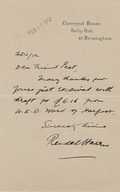 Chetwynd House,
Selly Oak,
nr Birmingham
FEB 13 1912
Feb 12/12
Dear Friend Peet
Many thanks for
yours just received with
draft for £6.16 from
W. E. D. Ward of Harpoot
Sincerely thine
Rendel Harris